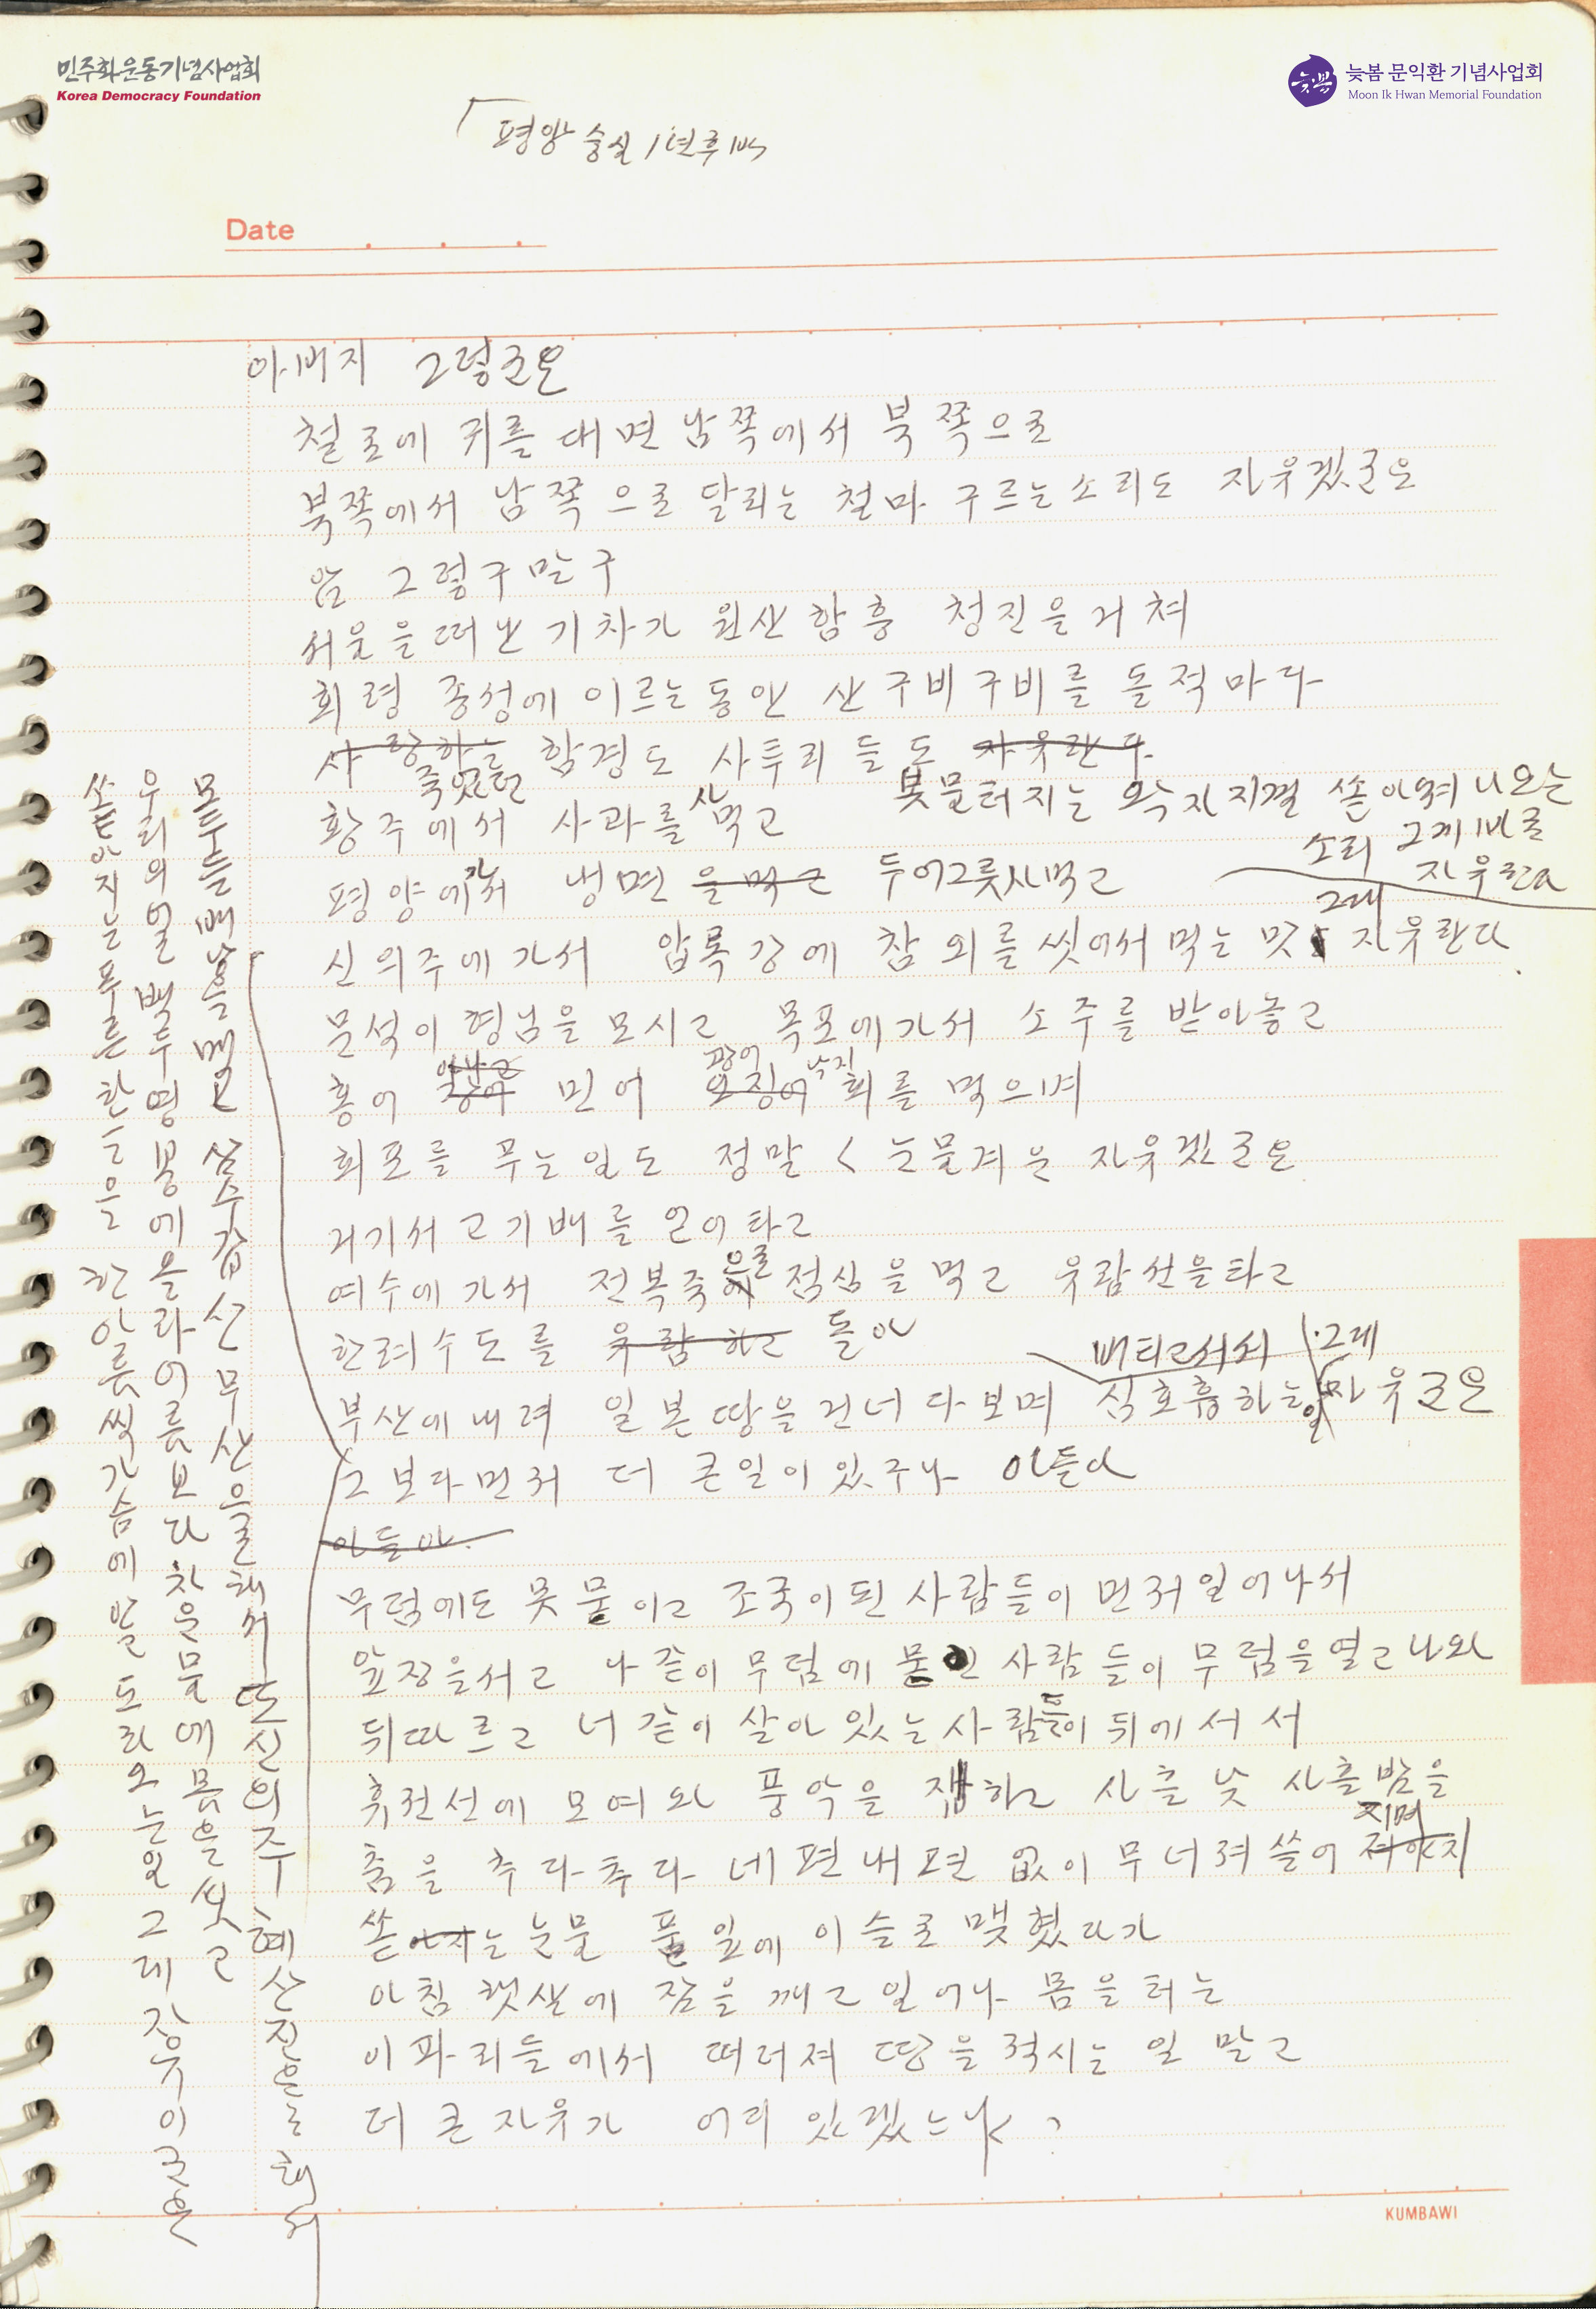 민주화운동기념사업회
Korea Democracy Foundation
늦봄 문익환 기념사업회
Moon Ik Hwan Memorial Foundation
늦봄
「평양 숭실 1년후
Date
아버지 그렇군요
철로에 귀를 대면 남쪽에서 북쪽으로
북쪽에서 남쪽으로 달리는 철마 구르는 소리도 자유겠군요
암 그렇구말구
서울을 떠난 기차가 원산 함흥 청진을 거쳐
회령 종성에 이르는 동안 산구비구비를 돌적마다
사랑하는 함경도 사투리들도 자유란다
봇물터지는 왁자지껄 쏟아져 나오는
소리 그게 바로
자유란다
황주에서 사과를 사 먹고
평양에 가서 냉면을 먹고 두어그릇 사먹고
신의주에 가서 압록강에 참외를 씻어서 먹는 맛 그게 자유란다.
문석이 형님을 모시고 목포에 가서 소주를 받아놓고
홍어 민어 광어 오징어 낙지 회를 먹으며
회포를 푸는 일도 정말 눈물겨운 자유겠군요
거기서 고기배를 얻어타고
여수에 가서 전복죽으로 점심을 먹고 유람선을 타고
한려수도를 유람하고 돌아
부산에 내려 일본땅을 건너다보며 버티고 서서 심호흡하는 일 그게 자유군요
그보다 먼저 더 큰일이 있구나 아들아
아들아.
무덤에도 못 묻히고 조국이 된 사람들이 먼저 일어나서
앞장을 서고 나같이 무덤에 묻힌 사람들이 무덤을 열고 나와
뒤따르고 너같이 살아 있는 사람들이 뒤에 서서
휴전선에 모여와 풍악을 잽히고 사흘 낮 사흘 밤을
춤을 추다 추다 네편 내편 없이 무너져 쓸어지며
쏟아지는 눈물 풀잎에 이슬로 맺혔다가
아침 햇살에 잠을 깨고 일어나 몸을 터는
이파리들에서 떨어져 땅을 적시는 일 말고
더 큰 자유가 어디 있겠느냐?
모두들 배낭을 메고 삼수갑산 무산으로 해서 또 신의주 혜산진으로 해서
우리의 얼 백두영봉에 올라 어름보다 찬 물에 몸을 씻고
쏟아지는 푸른 하늘을 한아름씩 가슴에 안고 돌아오는 일 그게 자유이군요
KUMBAWI